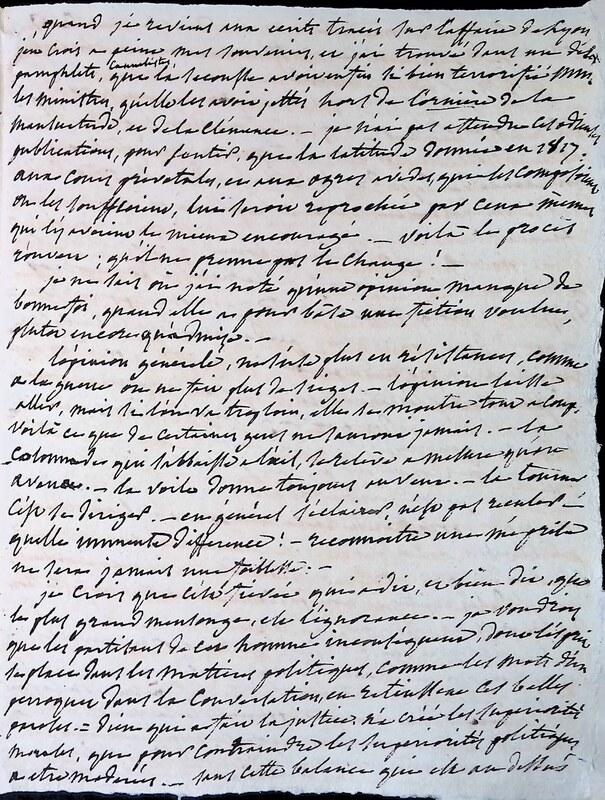 quand je reviens aux écrits tracés sur l'affaire de Lyon
j'en crois a peine mes souvenirs, et j'ai trouvé dans une des
pamphlets, que la secousse avoient bien terrorifié
les ministres, qu'elle les avoit jettés hors de l'ornière de la
mansuetude, et de la Clémence. — je n'irai pas attendre ces odieuses
publications, pour sentir, que la latitude donnée en 1817.
aux cours prévotales, et aux ogres avides, qui les composoient
ou les souffloient, lui seroit reprochée par ceux memes
qui les avoient le mieux encouragé. — voilà le procès
rouvert; qu'il ne prenne pas le change! —
je ne sais où j'ai noté qu'une opinion manque de
bonne foi, quand elle a pour base une fiction voulue,
plutot encore qu'admise. —
l'opinion générale, n'est plus en résistances, comme
a la guerre on ne fait plus de sièges. — l'opinion laisse
aller, mais si l'on va trop loin, elle se montre tout a coup.
voilà ce que de certaines gens ne sauront jamais. — la
colonne qui s'abbaisse a l'œil, se relève a mesure qu'on
avance. — la voile donne toujours au vent. — la tourner
c'est se diriger. — en général s'éclairer, n'est pas reculer —
quelle immense différence! — reconnoitre une méprise
ne sera jamais une foiblesse. —
je crois que c'est qui a dit, et bien dit, que
le plus grand mensonge, est l'ignorance. — je voudrois
que les partisans de cet homme inconséquent, dont l'esprit
se place dans les matières politiques, comme les mots d'un
perroquet dans la conversation, en retinssent ces belles
paroles. = Dieu qui a fait la justice, n'a créé les superiorités
morales, que pour contraindre les superiorités politiques
a etre moderées. — sans cette balance qui est au dessus